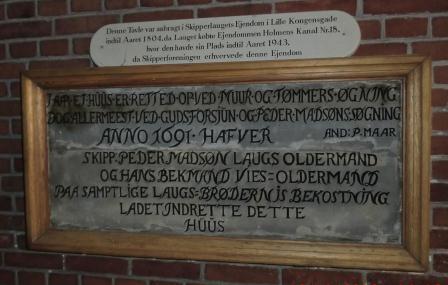 Denne Tavle var anbragt i Skipperlaugets Ejendom i Lille Kongensgade
indtil Aaret 1804, da Lauget købte Ejendommen Holmens Kanal Nr.18,
hvor den havde sin Plads indtil Aaret 1943,
da Skipperforeningen erhvervede denne Ejendom
APP ET HUUS ER RETTED OPVED MUUR OG TØMMERS ØGNING
DOG ALLERMEEST VED GUDS FORSJUN OG PEDER MADSØNS SØGNING
ANNO 1691 HAFVER AND: P. MAAR
SKIPP. PEDER MADSØN LAUGS OLDERMAND
OG HANS BEKMAND VIES=OLDERMAND
PAA SAMPTLIGE LAUGS=BRØDERNIS BEKOSTNING
LADET INDRETTE DETTE
HÜÜS